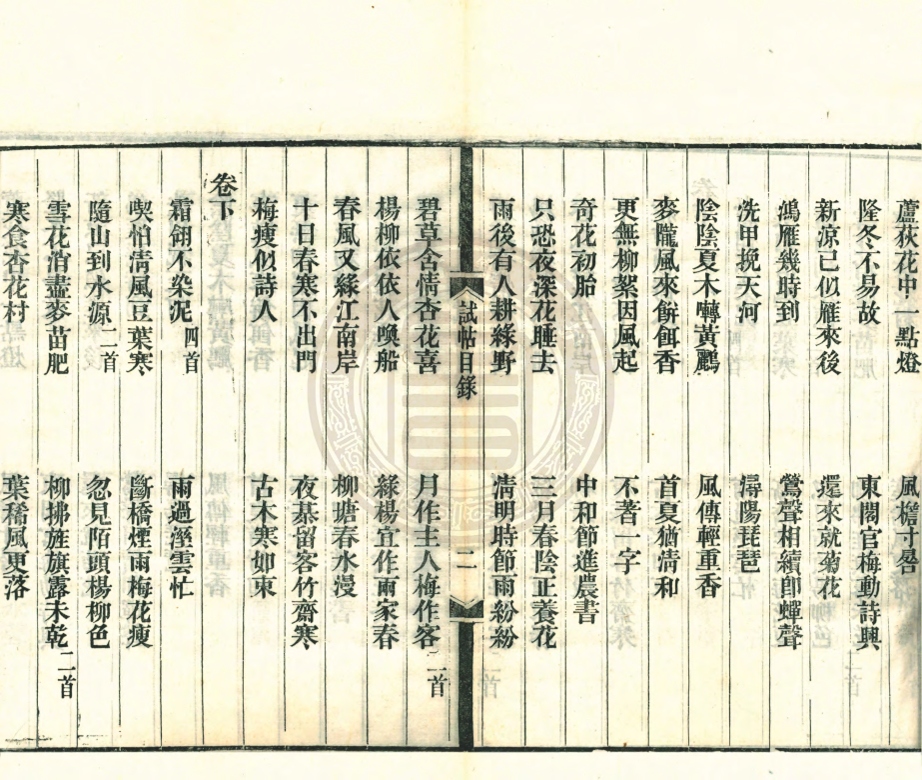 蘆荻花中一點燈　風檐寸晷
隆冬不易故　東閣官梅動詩興
新涼已似雁來後　還來就菊花
鴻雁幾時到　鶯聲相續卽蟬聲
洗甲挽天河　潯陽琵琶
陰陰夏木囀黃鸝　風傳輕重香
麥隴風來餅餌香　首夏猶淸和
更無柳絮因風起　不著一字
奇花初胎　中和節進農書
只恐夜深花睡去　三月春陰正養花
雨後有人耕綠野　淸明時節雨紛紛
試帖目錄　二
碧草含情杏花喜　月作主人梅作客二首
楊柳依依人喚船　綠楊宜作兩家春
春風又綠江南岸　柳塘春水漫
十日春寒不出門　夜棊留客竹齋寒
梅瘦似詩人　古木寒如束
卷下
霜翎不染泥四首　雨過溼雲忙
喫怕淸風豆葉寒　斷橋煙雨梅花瘦
隨山到水源二首　忽見陌頭楊柳色
雪花消盡麥苗肥　柳拂旌旗露未乾二首
寒食杏花村　葉稀風更落